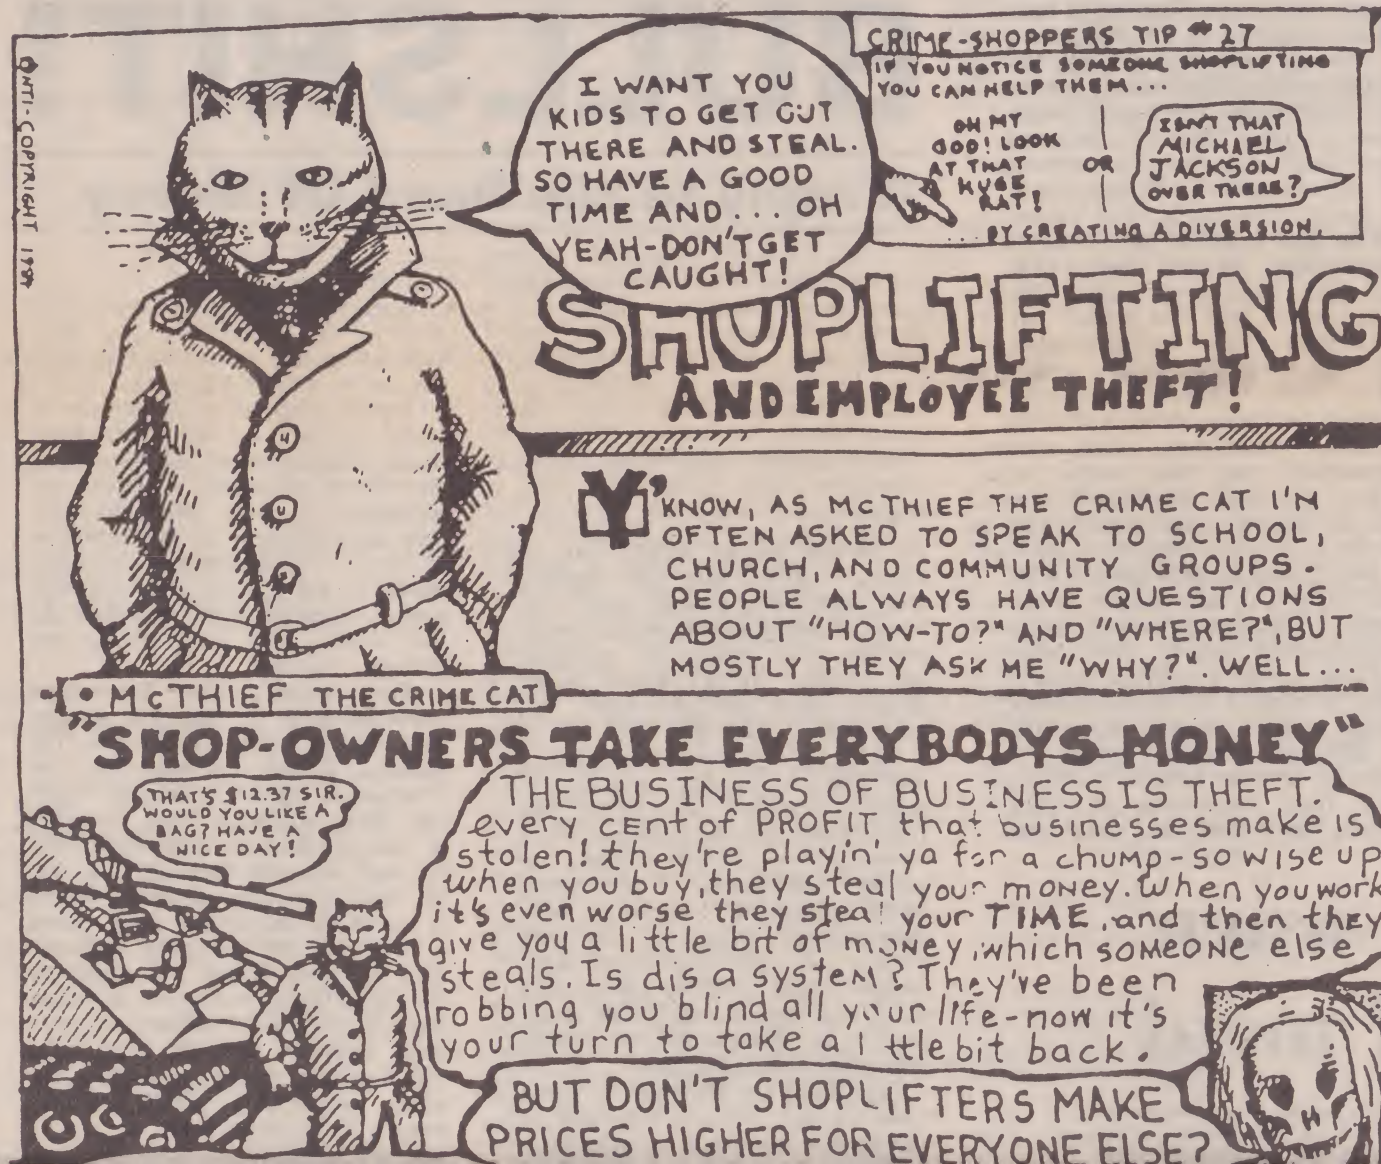 ANTI-COPYRIGHT
I WANT YOU
KIDS TO GET OUT
THERE AND STEAL.
SO HAVE A GOOD
TIME AND... OH
YEAH-DON'T GET
CAUGHT!
CRIME-SHOPPERS TIP #27
IF YOU NOTICE SOMEONE SHOPLIFTING
YOU CAN HELP THEM...
OH MY
GOD! LOOK
AT THAT
HUGE
RAT!
OR
ISN'T THAT
MICHAEL
JACKSON
OVER THERE?
...BY CREATING A DIVERSION.
SHOPLIFTING
AND EMPLOYEE THEFT!
Y'KNOW, AS McTHIEF THE CRIME CAT I'M
OFTEN ASKED TO SPEAK TO SCHOOL,
CHURCH, AND COMMUNITY GROUPS.
PEOPLE ALWAYS HAVE QUESTIONS
ABOUT "HOW-TO?" AND "WHERE?", BUT
MOSTLY THEY ASK ME "WHY?". WELL...
• McTHIEF THE CRIME CAT
"SHOP-OWNERS TAKE EVERYBODYS MONEY"
THAT'S $12.37 SIR.
WOULD YOU LIKE A
BAG? HAVE A
NICE DAY!
THE BUSINESS OF BUSINESS IS THEFT.
every cent of PROFIT that businesses make is
stolen! they're playin' ya for a chump-so wise up
when you buy, they steal your money. When you work
it's even worse they steal your TIME, and then they
give you a little bit of money, which someone else
steals. Is dis a system? They've been
robbing you blind all your life-now it's
your turn to take a little bit back.
BUT DON'T SHOPLIFTERS MAKE
PRICES HIGHER FOR EVERYONE ELSE?